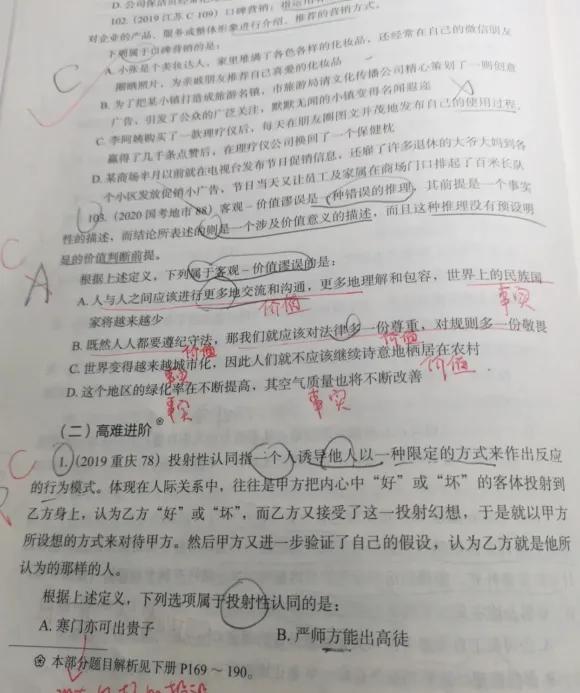 D. 公司保洁员经常
102. (2019江苏C 109) 口碑营销：指运用
对企业的产品、服务或整体形象进行介绍、推荐的营销方式。
下列属于口碑营销的是：
A. 小张是个美妆达人，家里堆满了各色各样的化妆品，还经常在自己的微信朋友
圈晒照片，为亲戚朋友推荐自己喜爱的化妆品
B. 为了把某小镇打造成旅游名镇，市旅游局请文化传播公司精心策划了一则创意
广告，引发了公众的广泛关注，默默无闻的小镇变得名闻遐迩
C. 李阿姨购买了一款理疗仪后，每天在朋友圈图文并茂地发布自己的使用过程，
赢得了几千条点赞后，在理疗仪公司换回了一个保健枕
D. 某商场半月以前就在电视台发布节目促销信息，还雇了许多退休的大爷大妈到各
个小区发放促销小广告，节日当天又让员工及家属在商场门口排起了百米长队
C
103. (2020国考地市88) 客观－价值谬误是一种错误的推理，其前提是一个事实
性的描述，而结论所表述的则是一个涉及价值意义的描述，而且这种推理没有预设明
显的价值判断前提。
C
A
根据上述定义，下列属于客观－价值谬误的是：
A. 人与人之间应该进行更多地交流和沟通，更多地理解和包容，世界上的民族国
家将越来越少
价值
事实
B. 既然人人都要遵纪守法，那我们就应该对法律多一份尊重，对规则多一份敬畏
价值
价值
C. 世界变得越来越城市化，因此人们就不应该继续诗意地栖居在农村
事实
价值
D. 这个地区的绿化率在不断提高，其空气质量也将不断改善
事实
事实
（二）高难进阶
C
1. (2019重庆78) 投射性认同指一个人诱导他人以一种限定的方式来作出反应
的行为模式。体现在人际关系中，往往是甲方把内心中“好”或“坏”的客体投射到
乙方身上，认为乙方“好”或“坏”，而乙方又接受了这一投射幻想，于是就以甲方
所设想的方式来对待甲方。然后甲方又进一步验证了自己的假设，认为乙方就是他所
认为的那样的人。
根据上述定义，下列选项属于投射性认同的是：
A. 寒门亦可出贵子 B. 严师方能出高徒
本部分题目解析见下册P169～190。